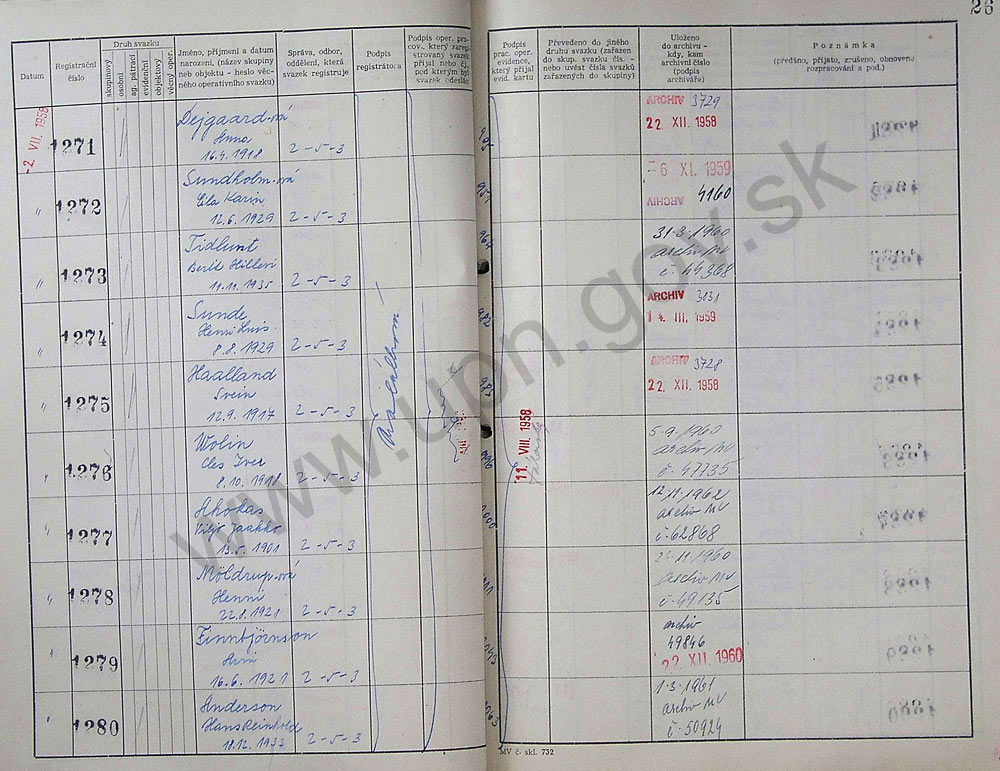 26
Datum
Registrační číslo
Druh svazku
skupinový
osobní
ag. pátrací
evidenční
objektový
věcný oper.
Jméno, příjmení a datum
narození, (název skupiny
neb objektu - heslo věc-
ného operativního svazku)
Správa, odbor,
oddělení, která
svazek registruje
Podpis
registrátora
Podpis oper. pra-
cov., který zare-
gistrovaný svazek
přijal nebo čj.,
pod kterým byl
svazek odeslán
Podpis
prac. oper.
evidence,
který přijal
evid. kartu
Převedeno do jiného
druhu svazku (zařazen
do skup. svazku čís. -
nebo uvést čísla svazků
zařazených do skupiny)
Uloženo
do archivu -
kdy, kam
archivní číslo
(podpis
archiváře)
Poznámka
(předáno, přijato, zrušeno, obnoveno
rozpracování a pod.)
-2. VII. 1958
1271
Dejgaard-ová
Anna
16.4.1918
2-5-3
ARCHIV 3729
22. XII. 1958
"
1272
Sundholm-ová
Eila Karin
12.6.1929
2-5-3
-6 XI. 1959
ARCHIV 4160
"
1273
Tidlunt
Berit Hilleri
11.11.1935
2-5-3
31-3-1960
archiv MV
č-44368
"
1274
Sunde
Henri
8.8.1929
2-5-3
982
ARCHIV 3131
14. III. 1959
"
1275
Haalland
Svein
12.9.1917
2-5-3
985
ARCHIV 3728
22. XII. 1958
"
1276
Wolin
Iver
8.10.1918
2-5-3
996
11. VIII. 1958
5-9-1960
archiv MV
č-47735
"
1277
Ahokas
Viljo Jaakko
13.5.1901
2-5-3
12.11.1962
archiv MV
č-62868
"
1278
Möldrup-ová
Henni
22.8.1921
2-5-3
11-1960
archiv MV
č-49135
"
1279
Finnbjörnson
16.6.1921
2-5-3
archiv
49846
22 XII. 1960
"
1280
Anderson
Hans Reinhold
18.12.1933
2-5-3
1-3-1961
archiv MV
č-50924
MV č. skl. 732
www.upn.gov.sk